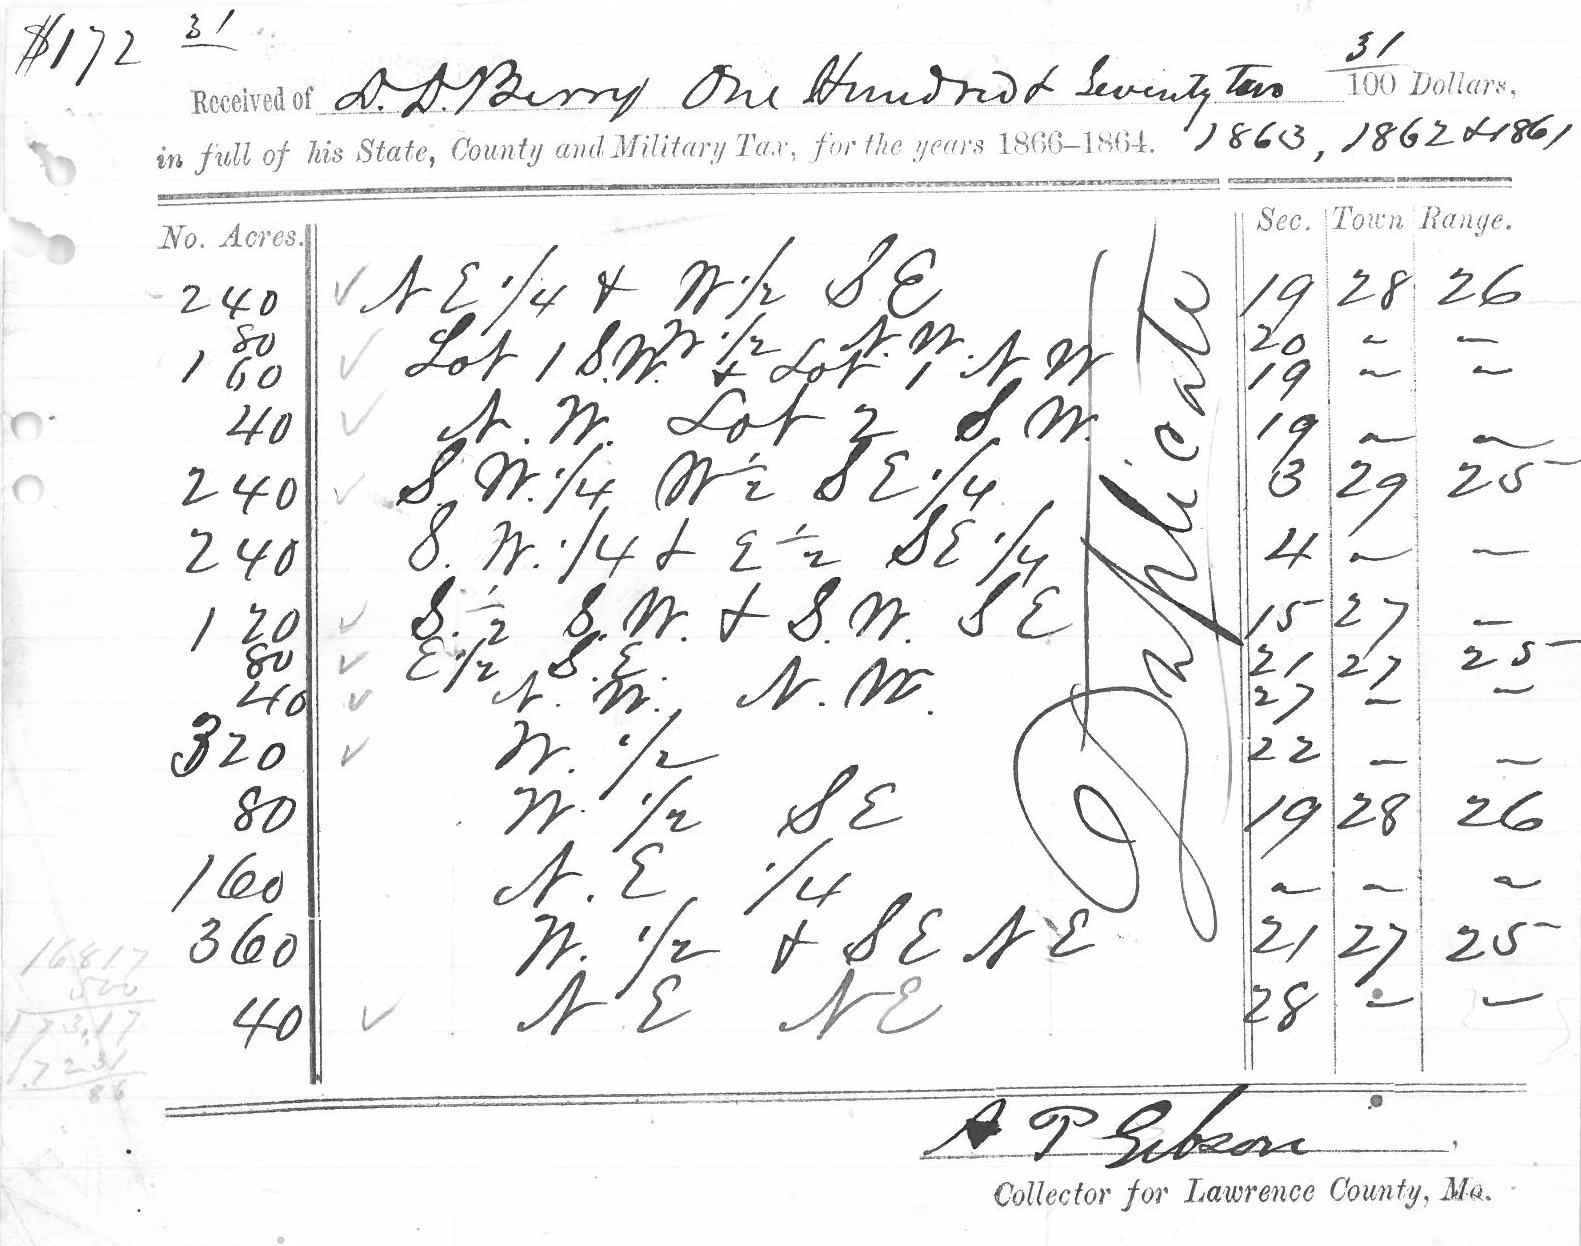 $172 31
Received of D. D. Berry One Hundred & Seventy Two 31/100 Dollars,
in full of his State, County and Military Tax, for the years 1866-1864. 1863, 1862 & 1861
No. Acres. Sec. Town Range.
240 ✓ N E 1/4 & W 1/2 S E 19 28 26
80 W 1/2 N. W. 20 " "
160 ✓ Lot 1 S.W. & Lot 1 N W 19 " "
40 ✓ N. W. Lot 2 S W. 19 " "
240 ✓ S. W. 1/4 W 1/2 S E 1/4 3 29 25
240 S. W. 1/4 & E 1/2 S E 1/4 4 " "
120 ✓ S. 1/2 S. W. & S. W. S E 15 27 "
80 ✓ E 1/2 S. E. 21 27 25
40 ✓ N. W. N. W. 27 " "
320 ✓ W. 1/2 22 " "
80 W. 1/2 S E 19 28 26
160 N. E 1/4 " " "
360 W. 1/2 & S E N E 21 27 25
40 ✓ N E N E 28 " "
Duplicate
168.17
500
173.17
172 31
86
A P Gibson
Collector for Lawrence County, Mo.